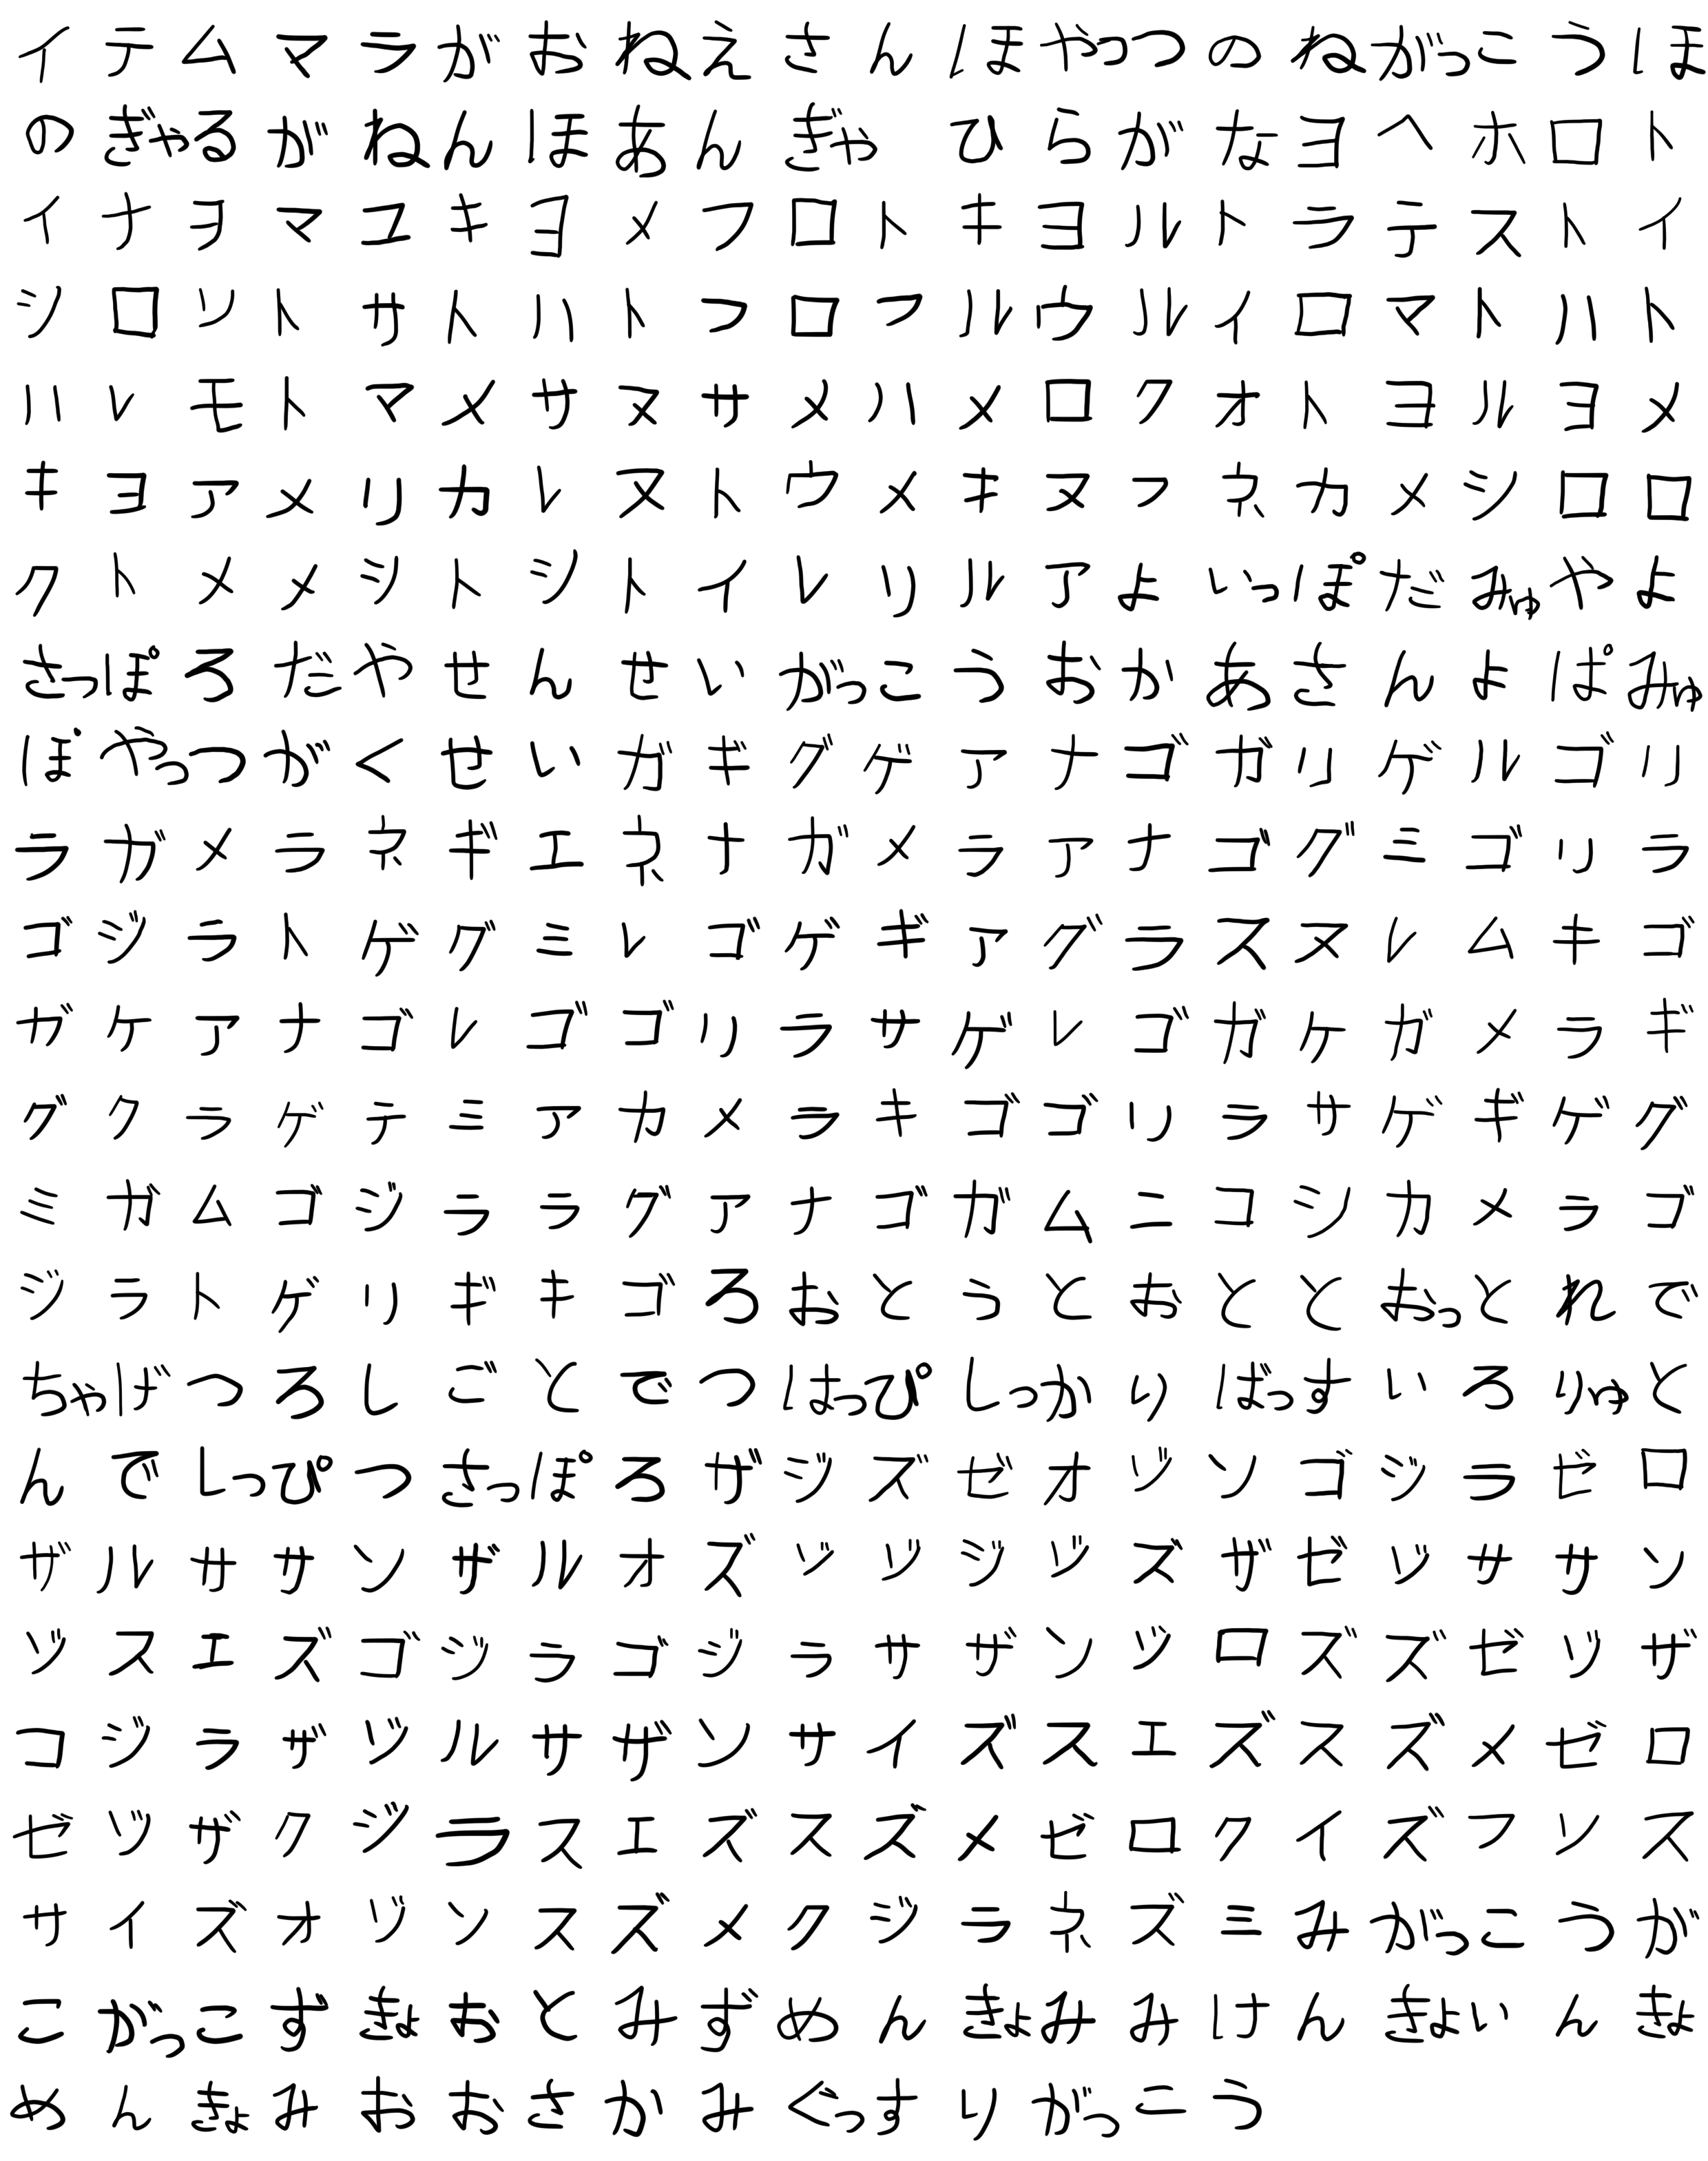 イテムマラがおねえさんほやっつのねがっこうほ
のぎゃるがねんほあんぎゃひらがなヨヘホロト
イナヨマユキヨメフロトキヨルトラテストイ
シロソトサトハトフロフルウルイロマトハト
ハレモトマメサヌサメハメロクオトヨルヨメ
キヨアメリカレヌトウメキヌフネカメシロロ
クトメメシトシトイレリルアよいっぽだみゅやよ
さっぽろだやせんせいがっこうおかあさんよぱみゅ
ぽやっつがくせいガギグゲアナゴガリゲルゴリ
ラガメラネギエネナガメラアナゴグミゴリラ
ゴジラトゲグミレゴゲギアグラスヌレムキゴ
ガケアナゴレゴゴリラサゲレゴガケガメラギ
グクラゲテミアカメラキゴゴリラサゲギゲグ
ミガムゴジララグアナゴガムニコシカメラゴ
ジラトゲリギキゴろおとうとおととおっとれで
ちゃげつろしごとでつはっぴしっかりばっすいろりゅと
んでしっぴつさっぽろザジズゼオゾソゴジラゼロ
ザルササンザルオズゾゾジゾズザゼゾササソ
ゾスエズゴジラゴジラサザンゾロズズゼゾザ
コジラザゾルサザンサイズスエズスズメゼロ
ゼゾザクジラスエズスズメゼロクイズフソス
サイズオゾンスズメクジラネズミみがっこうが
こがっこずきょおとみずめんきょみみけんきょいんきょ
めんきょみおおさかみぐっすりがっこう